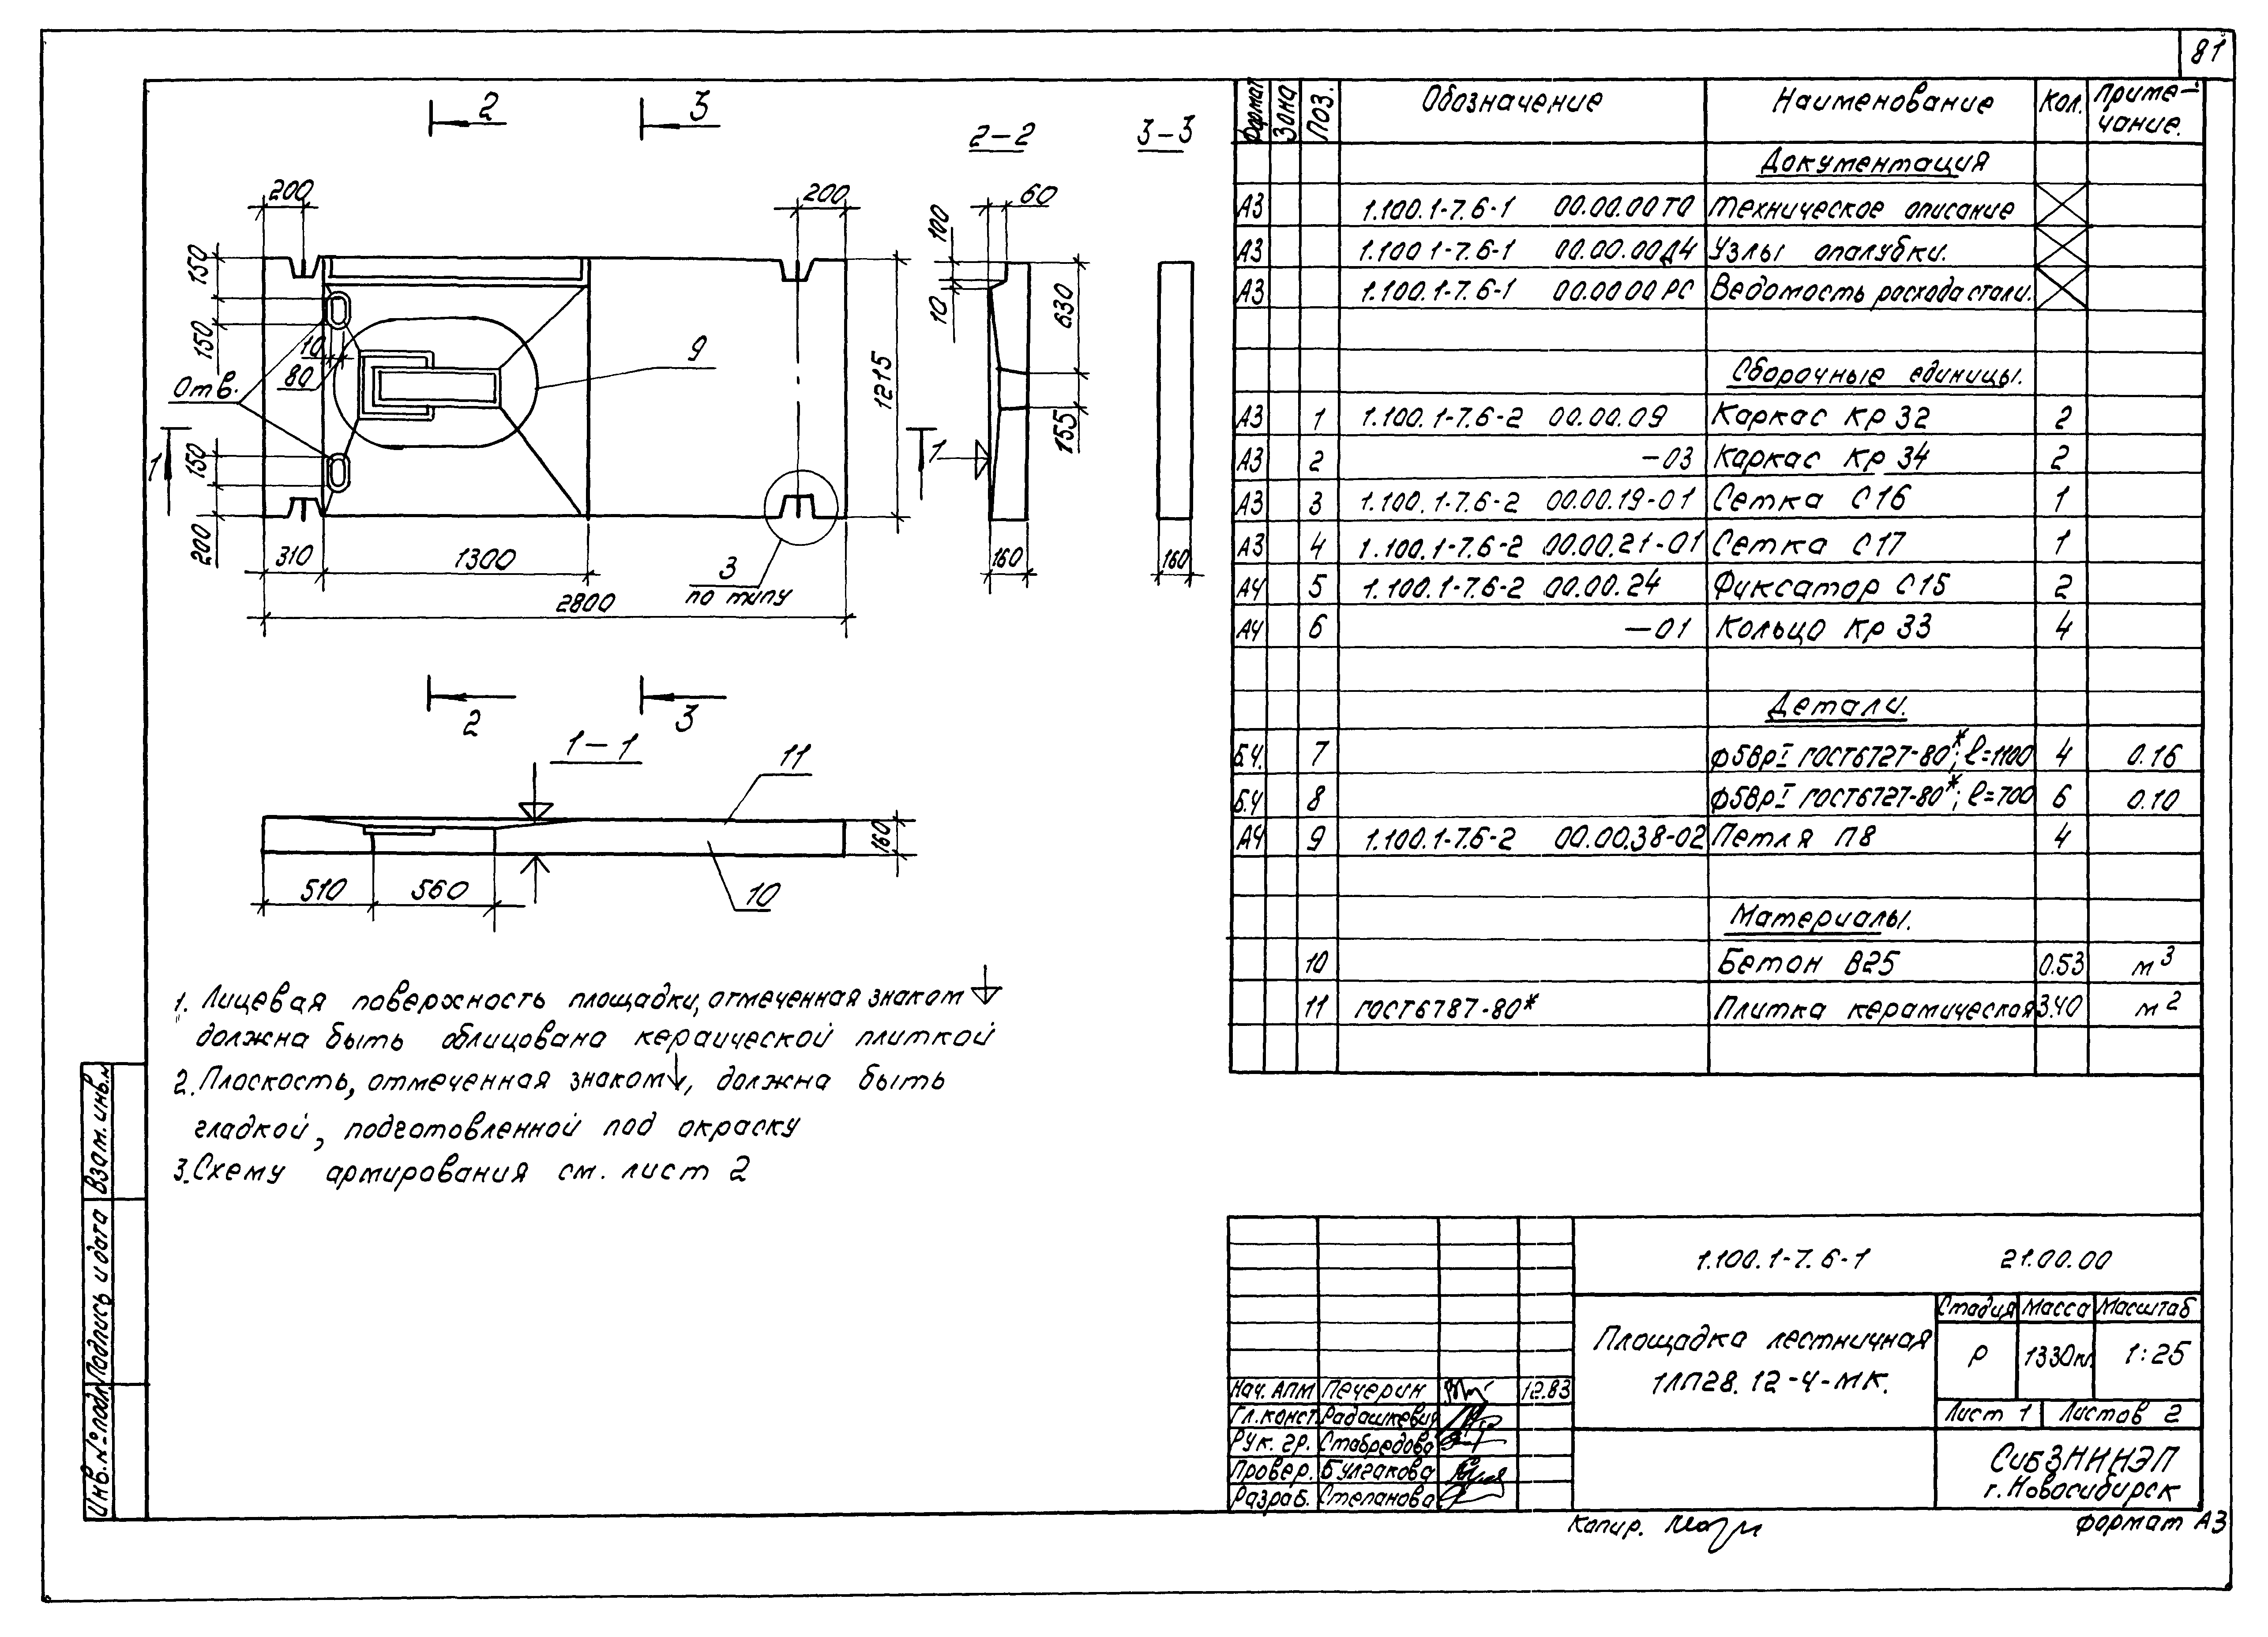 81
2 3
2-2 3-3
200 200
60
100
10
630
155
150
150
10
80
Отв.
9
1215
1 1
150
200
310 1300
3
по типу
2800
160
160
2 3
1-1
11
160
510 560
10
1. Лицевая поверхность площадки, отмеченная знаком
должна быть облицована кераической плиткой
2. Плоскость, отмеченная знаком , должна быть
гладкой, подготовленной под окраску
3. Схему армирования см. лист 2
Формат Зона Поз. Обозначение Наименование Кол. Приме-
чание.
Документация
А3 1.100.1-7.6-1 00.00.00 ТО Техническое описание
А3 1.100 1-7.6-1 00.00.00Д4 Узлы опалубки.
А3 1.100.1-7.6-1 00.00 00 РС Ведомость расхода стали.
Сборочные единицы.
А3 1 1.100.1-7.6-2 00.00.09 Каркас Кр 32 2
А3 2 -03 Каркас Кр 34 2
А3 3 1.100.1-7.6-2 00.00.19-01 Сетка С16 1
А3 4 1.100.1-7.6-2 00.00.21-01 Сетка С17 1
А4 5 1.100.1-7.6-2 00.00.24 Фиксатор С15 2
А4 6 -01 Кольцо Кр 33 4
Детали.
Б.Ч. 7 ϕ5ВрI ГОСТ6727-80*; ℓ=1100 4 0.16
Б.Ч 8 ϕ5ВрI ГОСТ6727-80*; ℓ=700 6 0.10
А4 9 1.100.1-7.6-2 00.00.38-02 Петля П8 4
Материалы.
10 Бетон В25 0.53 м³
11 ГОСТ6787-80* Плитка керамическая 3.40 м²
1.100.1-7.6-1 21.00.00
Площадка лестничная
1ЛП28.12-4-МК.
Стадия Масса Масштаб
Р 1330кг. 1:25
Лист 1 Листов 2
СибЗНИИЭП
г. Новосибирск
Нач. АПМ Печерин 12.83
Гл. конст. Радашкевич
Рук. гр. Стабредова
Провер. Булгакова
Разраб. Степанова
Копир.
Формат А3
Взам. инв. №
Подпись и дата
Инв. № подл.